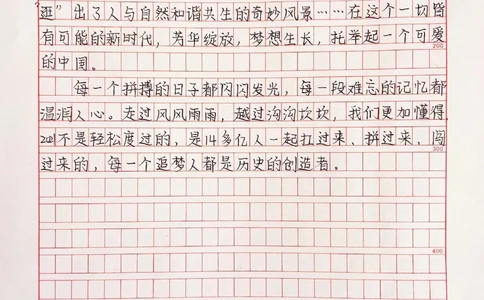 逛”出了人与自然和谐共生的奇妙风景……在这个一切皆
有可能的新时代，芳华绽放，梦想生长，托举起一个可爱
200
的中国。
每一个拼搏的日子都闪闪发光，每一段难忘的记忆都
温润人心。走过风风雨雨，越过沟沟坎坎，我们更加懂得，
2021不是轻松度过的，是14多亿人一起扛过来、拼过来、闯
300
过来的，每一个追梦人都是历史的创造者。
400